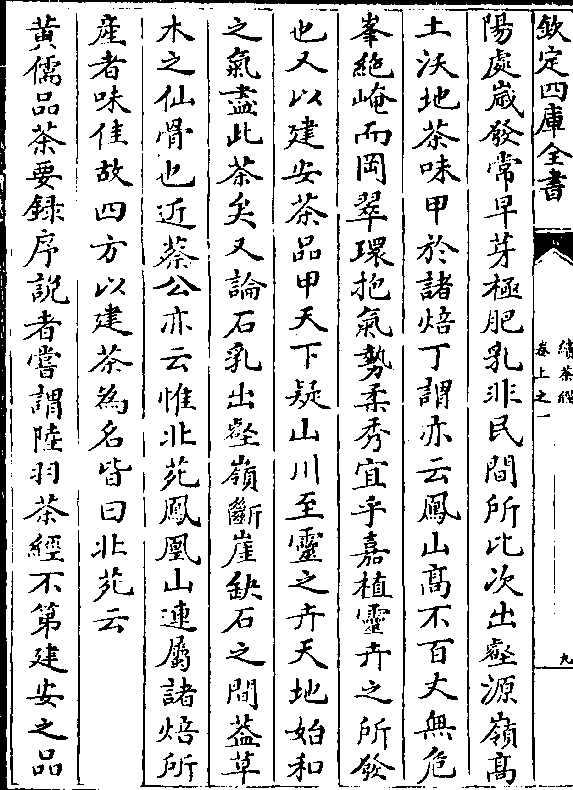 欽定四庫全書
續茶經
卷上之一
九
陽處嵗發常早芽極肥乳非民間所比次出壑源嶺髙
土沃地茶味甲於諸焙丁謂亦云鳳山髙不百丈無危
峯絶崦而岡翠環抱氣勢柔秀宜乎嘉植靈卉之所發
也又以建安茶品甲天下疑山川至靈之卉天地始和
之氣盡此茶矣又論石乳出壑嶺斷崖缺石之間葢草
木之仙骨也近蔡公亦云惟北苑鳳凰山連屬諸焙所
産者味佳故四方以建茶為名皆曰北苑云
黄儒品茶要録序説者嘗謂陸羽茶經不第建安之品